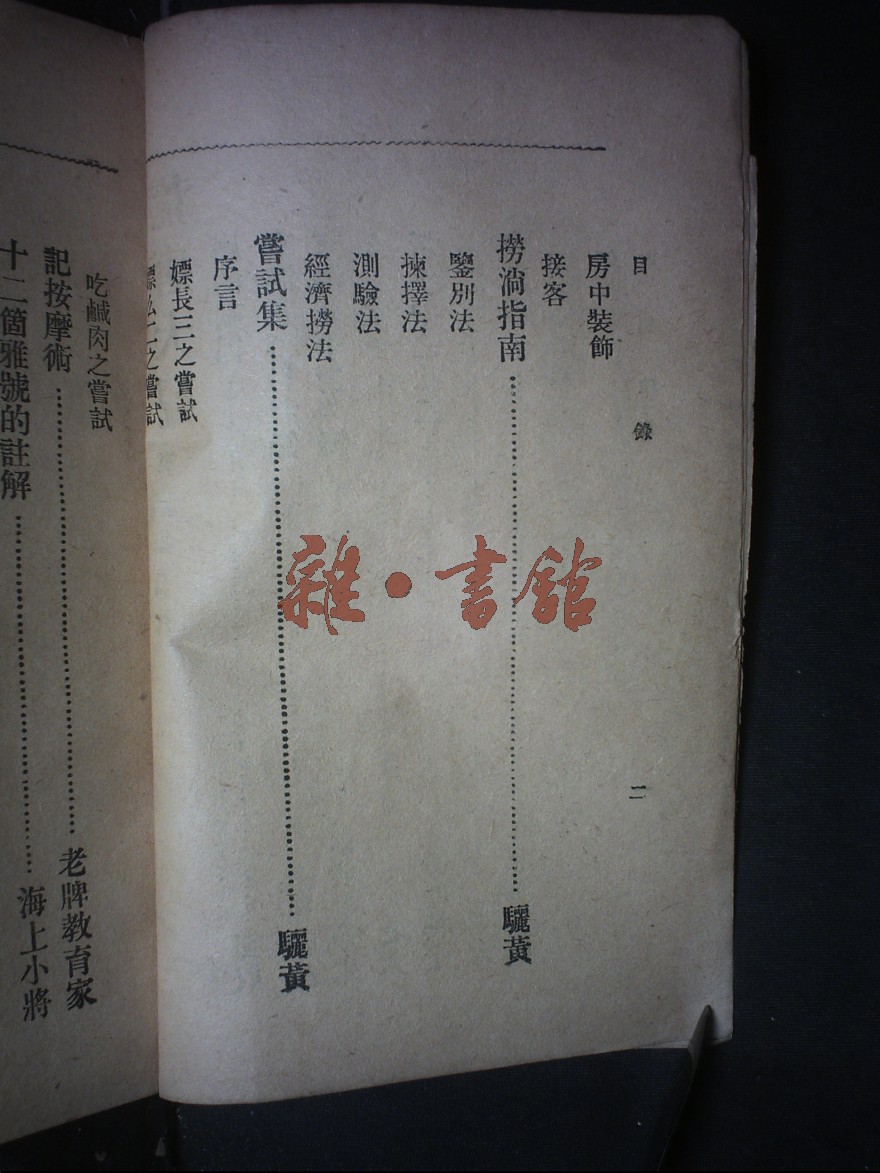 目錄 二
房中裝飾
接客
撈淌指南……驪黃
鑒別法
揀擇法
測驗法
經濟撈法
嘗試集……驪黃
序言
嫖長三之嘗試
嫖么二之嘗試
吃鹹肉之嘗試
記按摩術……老牌教育家
十二箇雅號的註解……海上小將
雜·書館